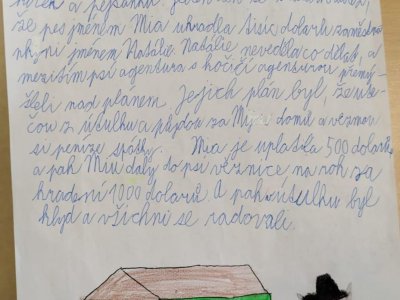 že pes jménem Mia ukradla tisíc dolarů zaměstna
nkyni jménem Natálie. Natálie nevěděla co dělat, a
mezitím psí agentura s kočičí agenturou přemý-
šleli nad plánem. Jejich plán byl, že ute-
čou z útulku a půjdou za Mijí domů a vezmou
si peníze zpátky. Mia je uplatila 500 dolarů
a pak Miu daly do psí věznice na rok za
kradení 1000 dolarů. A pak v útulku byl
klid a všichni se radovali.